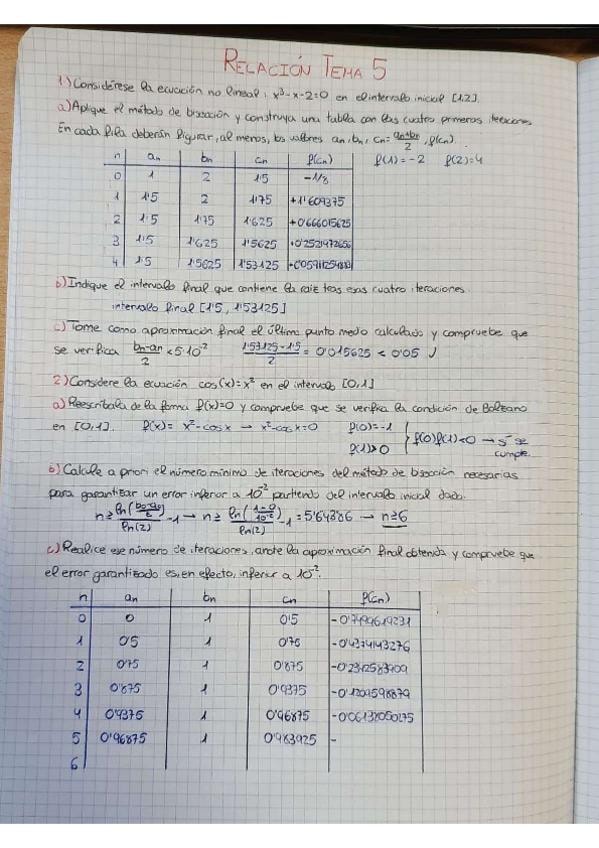 RELACIÓN TEMA 5
1) Considérese la ecuación no lineal: x³-x-2=0 en el intervalo inicial [1,2].
a) Aplique el método de bisección y construya una tabla con las cuatro primeras iteraciones.
En cada fila deberán figurar, al menos, los valores an, bn, cn= (an+bn)/2, f(cn).
n an bn cn f(cn) f(1)=-2 f(2)=4
0 1 2 1'5 -1/8
1 1'5 2 1'75 +1'609375
2 1'5 1'75 1'625 +0'666015625
3 1'5 1'625 1'5625 +0'2521972656
4 1'5 1'5625 1'53125
b) Indique el intervalo final que contiene la raíz tras esas cuatro iteraciones.
intervalo final [1'5, 1'53125]
c) Tome como aproximación final el último punto medio calculado y compruebe que
se verifica (bn-an)/2 < 5·10⁻² (1'53125-1'5)/2 = 0'015625 < 0'05 √
2) Considere la ecuación cos(x)=x² en el intervalo [0,1]
a) Reescríbala de la forma f(x)=0 y compruebe que se verifica la condición de Bolzano
en [0,1]. f(x)= x²-cosx → x²-cosx=0 f(0)=-1 f(1)>0 } f(0)f(1)<0 → sí se cumple.
b) Calcule a priori el número mínimo de iteraciones del método de bisección necesarias
para garantizar un error inferior a 10⁻² partiendo del intervalo inicial dado.
n≥ ln((b0-a0)/ε)/ln(2) -1 → n≥ ln((1-0)/10⁻²)/ln(2) -1 = 5'64386 → n≥6
c) Realice ese número de iteraciones, anote la aproximación final obtenida y compruebe que
el error garantizado es, en efecto, inferior a 10⁻².
n an bn cn f(cn)
0 0 1 0'5
1 0'5 1 0'75
2 0'75 1 0'875
3 0'875 1 0'9375 -0'1209598879
4 0'9375 1 0'96875
5 0'96875 1 0'983925 -
6